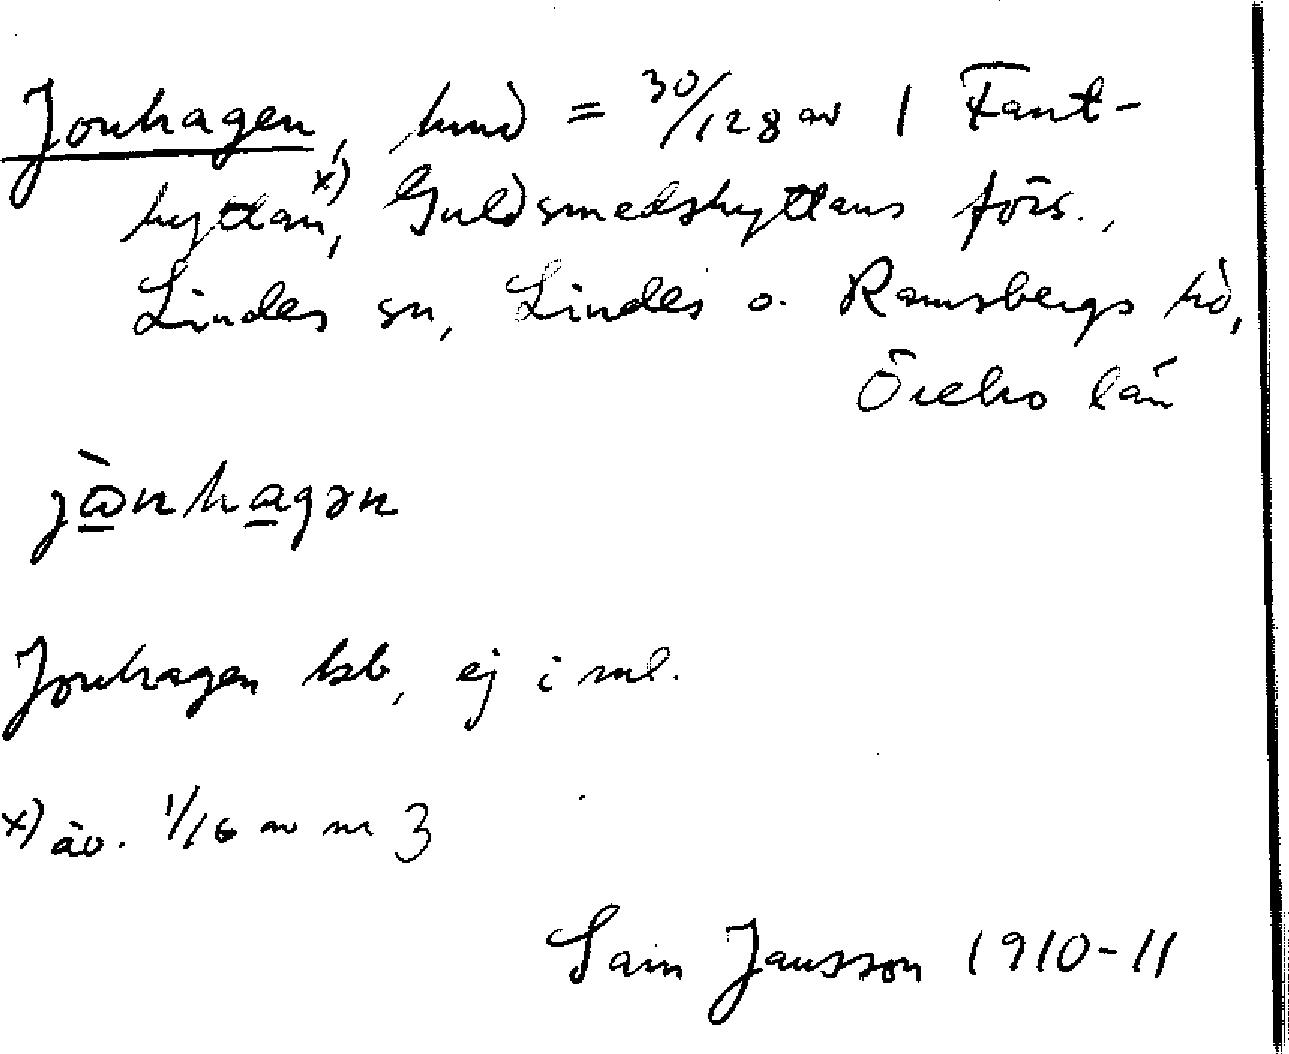 Jonhagen, hmd = 30/128 av 1 Fant-
hyttan x), Guldsmedshyttans förs.,
Lindes sn, Lindes o. Ramsbergs hd,
Örebro län
jònhagən
Jonhagen kb, ej i ml.
x) äv. 1/16 av nr 3
Sam Jansson 1910-11